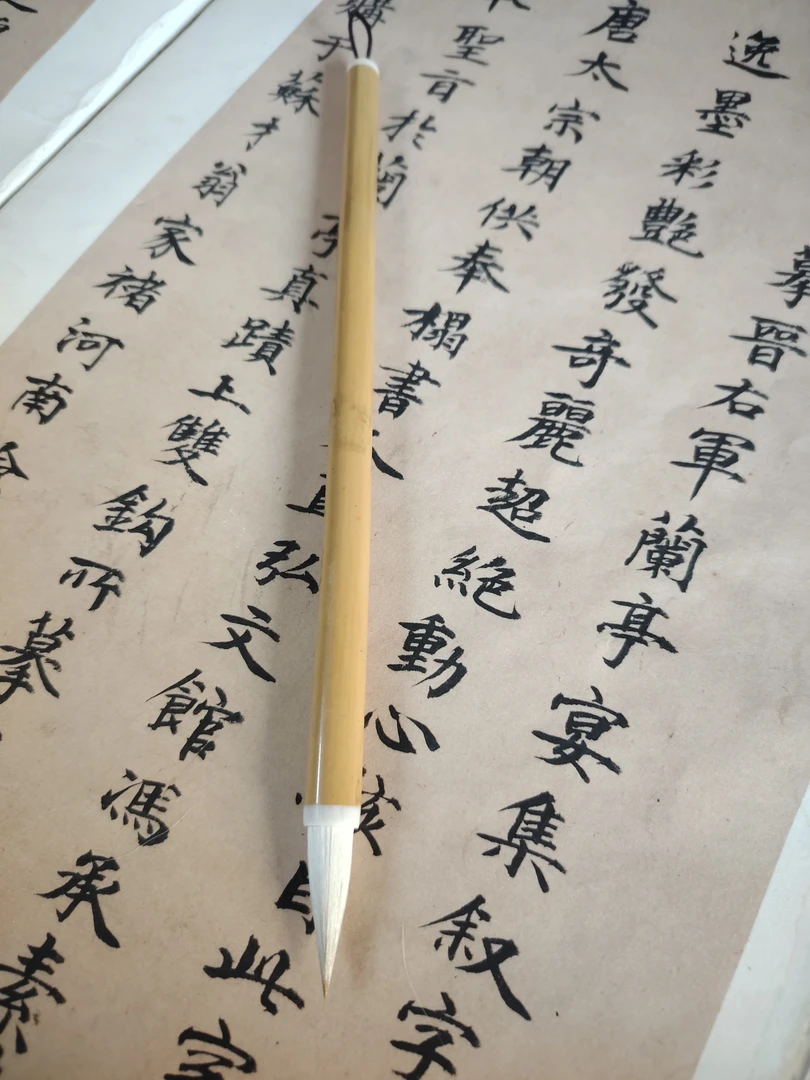 摹晉右軍蘭亭宴集敘字
逸墨彩艷發奇麗超絕動心駭目此字
唐太宗朝供奉榻書人直弘文館馮承素
聖旨於蘭亭真蹟上雙鉤所摹
購于蘇才翁家褚河南